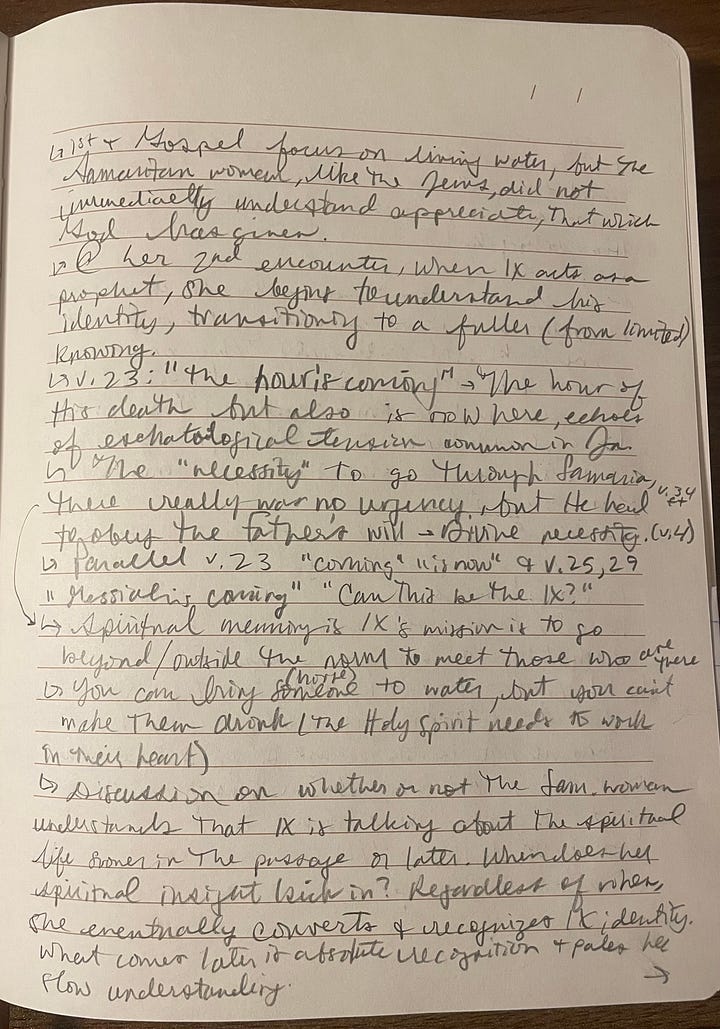 ↳ 1st + Gospel focus on living water, but the
Samaritan woman, like the Jews, did not
immediately understand appreciate, that which
God has given.
↳ @ her 2nd encounter, when IX acts as a
prophet, she begins to understand his
identity, transitioning to a fuller (from limited)
knowing.
↳ v. 23: "the hour is coming" → "The hour of
His death but also is now here, echoes
of eschatological tension common in Jn.
↳ The "necessity" to go through Samaria, v. 3,4
there really was no urgency, but He had
to obey the Father's will → Divine necessity. (v.4)
↳ Parallel v. 23 "coming" "is now" & v. 25, 29
"Messiah is coming" "Can this be the IX?"
↳ Spiritual meaning is IX's mission is to go
beyond/outside the norm to meet those who are there
↳ You can bring someone (horse) to water, but you can't
make them drink (the Holy Spirit needs to work
in their heart)
↳ Discussion on whether or not the Sam. woman
understands that IX is talking about the spiritual
life sooner in the passage or later. When does her
spiritual insight kick in? Regardless of when,
she eventually converts & recognizes IX identity.
What comes later is absolute recognition + pales her
slow understanding. →